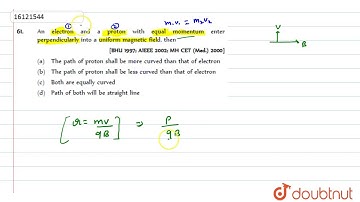 16121544
① ② m₁v₁ = m₂v₂
61. An electron and a proton with equal momentum enter
perpendicularly into a uniform magnetic field. then
[BHU 1997; AIEEE 2002; MH CET (Med.) 2000]
(a) The path of proton shall be more curved than that of electron
(b) The path of proton shall be less curved than that of electron
(c) Both are equally curved
(d) Path of both will be straight line
V
B
[r = mv/qB] ⇒ P/qB
doubtnut